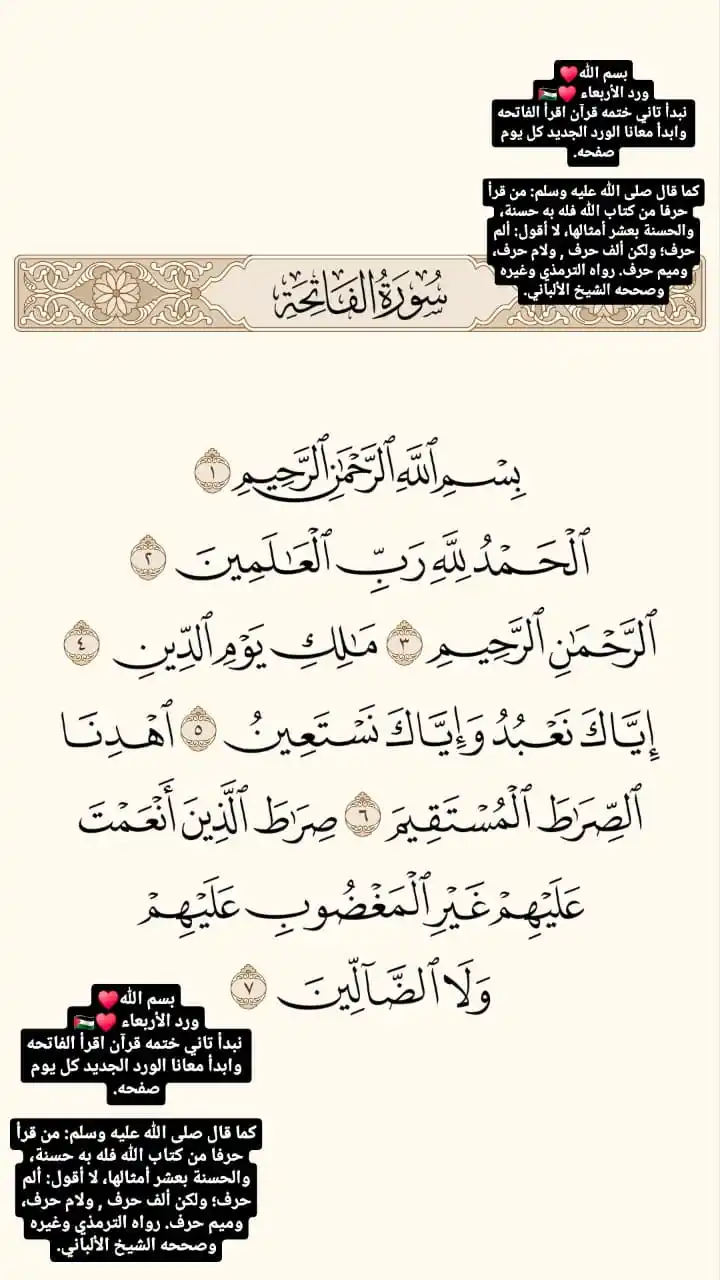 بسم الله❤️
ورد الأربعاء ❤️🇵🇸
نبدأ تاني ختمه قرآن اقرأ الفاتحه
وابدأ معانا الورد الجديد كل يوم
صفحه.
كما قال صلى الله عليه وسلم: من قرأ
حرفا من كتاب الله فله به حسنة،
والحسنة بعشر أمثالها، لا أقول: ألم
حرف؛ ولكن ألف حرف , ولام حرف،
وميم حرف. رواه الترمذي وغيره
وصححه الشيخ الألباني.
سُورَةُ الفَاتِحَةِ
بِسْمِ ٱللَّهِ ٱلرَّحْمَٰنِ ٱلرَّحِيمِ ١
ٱلْحَمْدُ لِلَّهِ رَبِّ ٱلْعَٰلَمِينَ ٢
ٱلرَّحْمَٰنِ ٱلرَّحِيمِ ٣ مَٰلِكِ يَوْمِ ٱلدِّينِ ٤
إِيَّاكَ نَعْبُدُ وَإِيَّاكَ نَسْتَعِينُ ٥ ٱهْدِنَا
ٱلصِّرَٰطَ ٱلْمُسْتَقِيمَ ٦ صِرَٰطَ ٱلَّذِينَ أَنْعَمْتَ
عَلَيْهِمْ غَيْرِ ٱلْمَغْضُوبِ عَلَيْهِمْ
وَلَا ٱلضَّآلِّينَ ٧
بسم الله❤️
ورد الأربعاء ❤️🇵🇸
نبدأ تاني ختمه قرآن اقرأ الفاتحه
وابدأ معانا الورد الجديد كل يوم
صفحه.
كما قال صلى الله عليه وسلم: من قرأ
حرفا من كتاب الله فله به حسنة،
والحسنة بعشر أمثالها، لا أقول: ألم
حرف؛ ولكن ألف حرف , ولام حرف،
وميم حرف. رواه الترمذي وغيره
وصححه الشيخ الألباني.